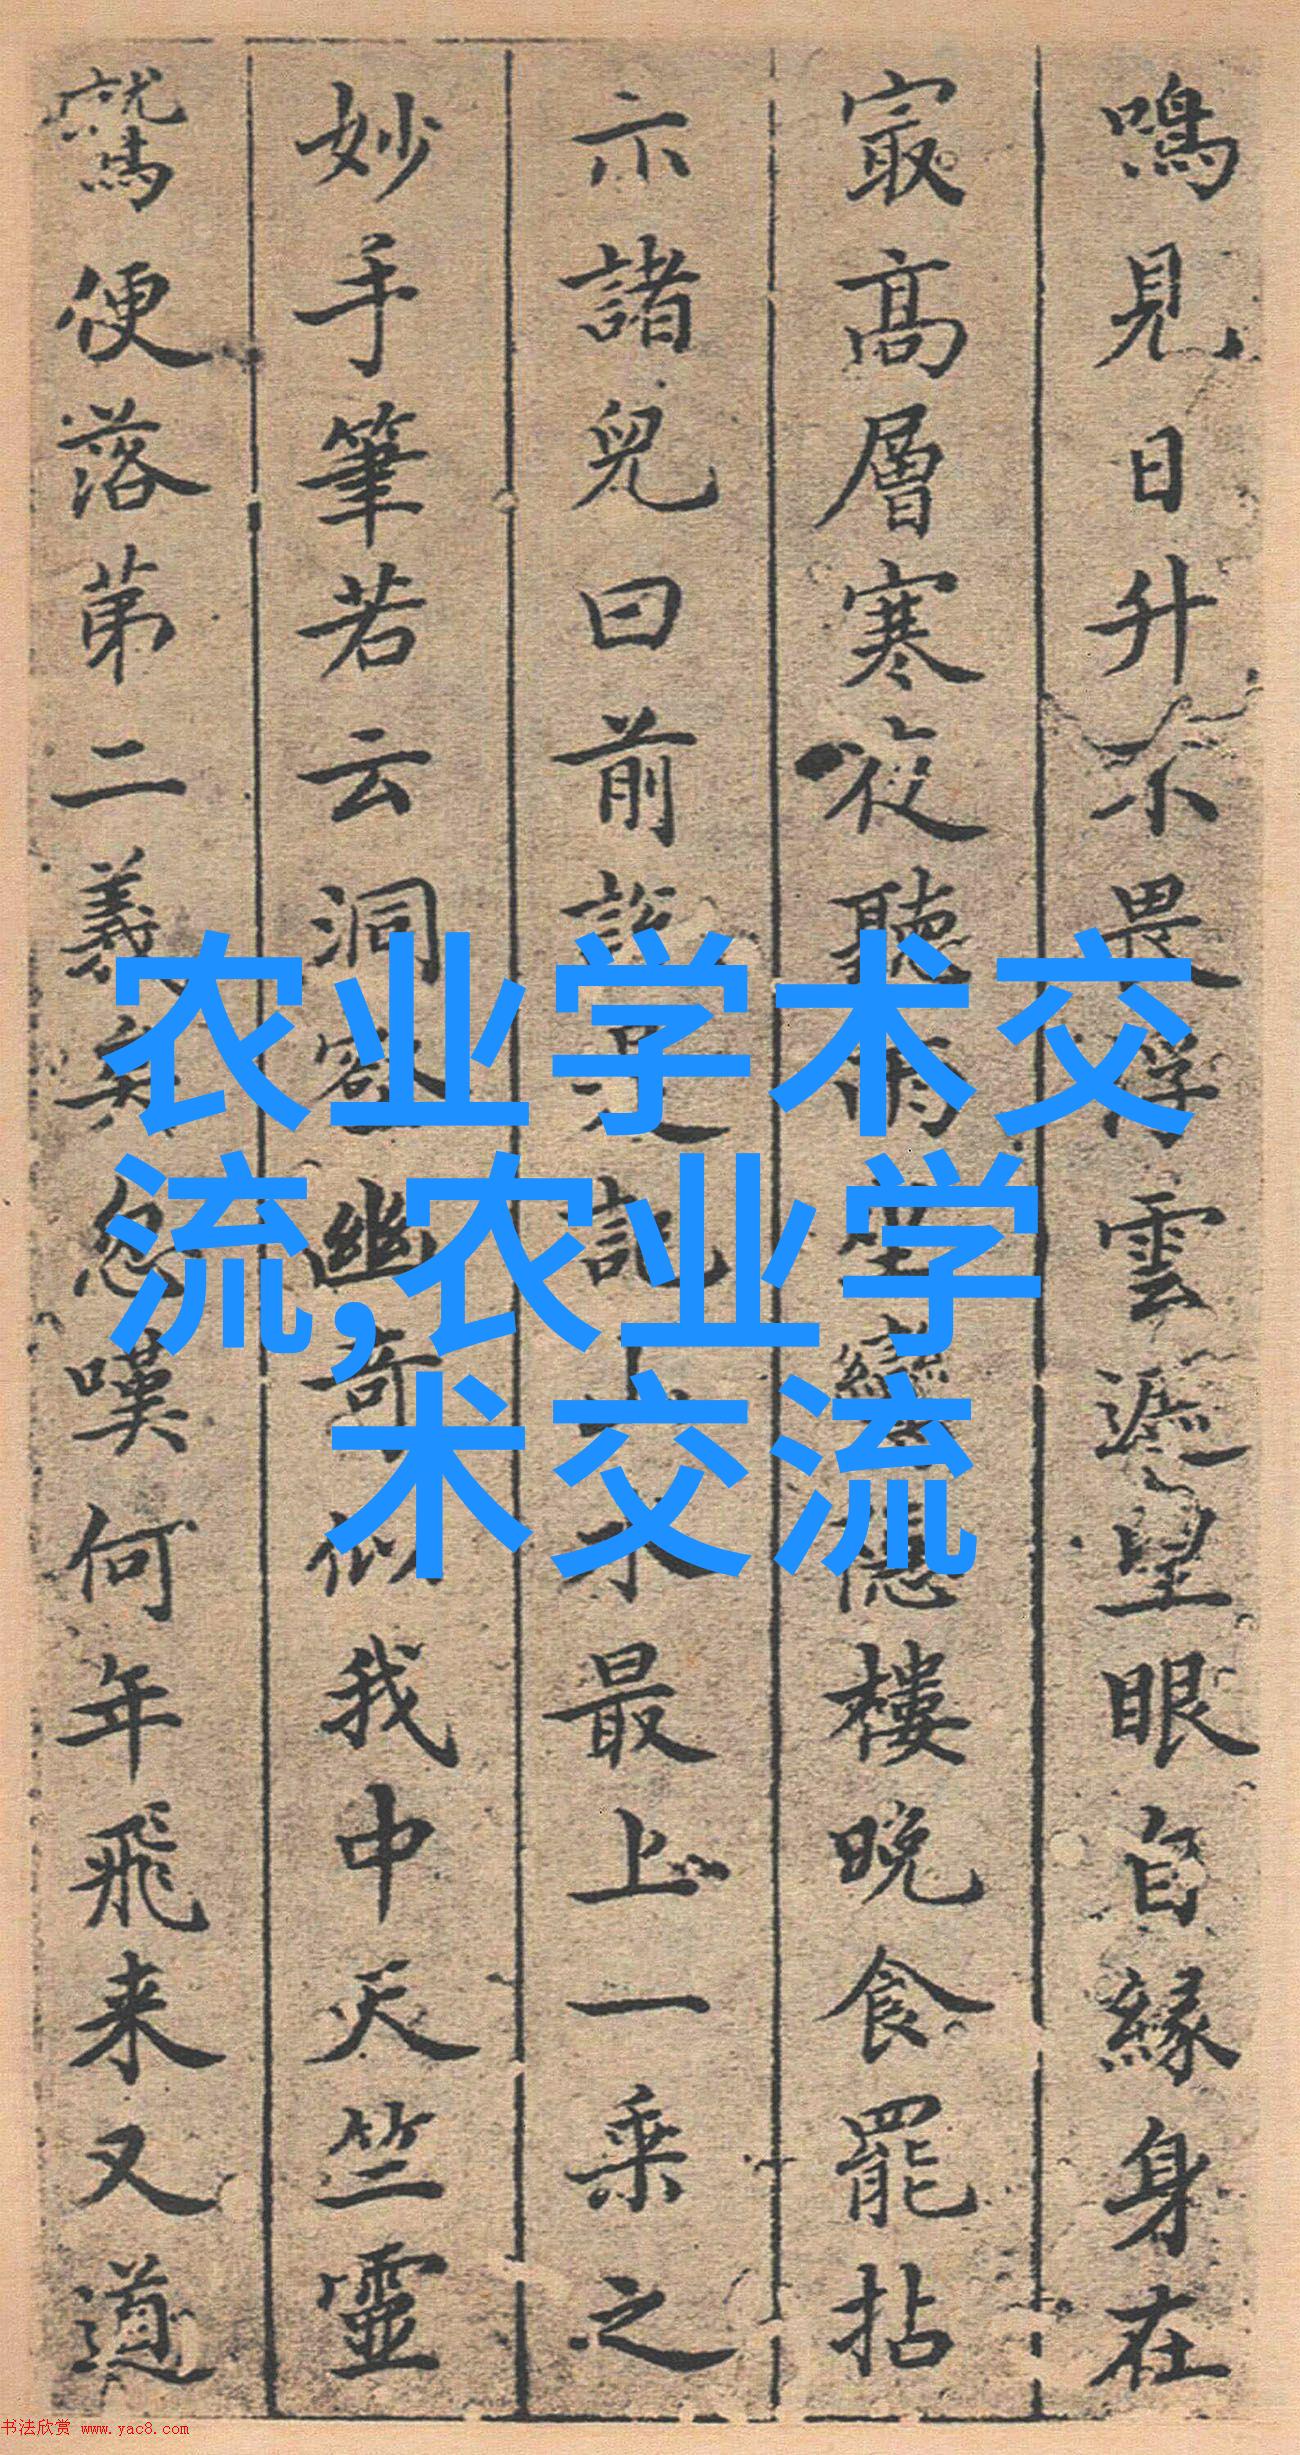 鳴見日升不畏浮雲遮望眼自緣身在
冣高層寒夜聽雨樓晚食罷拈
示諸兒曰前記水最上一乗之
妙手筆若云洞壑幽奇似我中天竺靈
鷲便落苐二義矣忽嘆何年飛来又道
农业学术交
流,农业学
术交流
书法欣赏 www.yac8.com